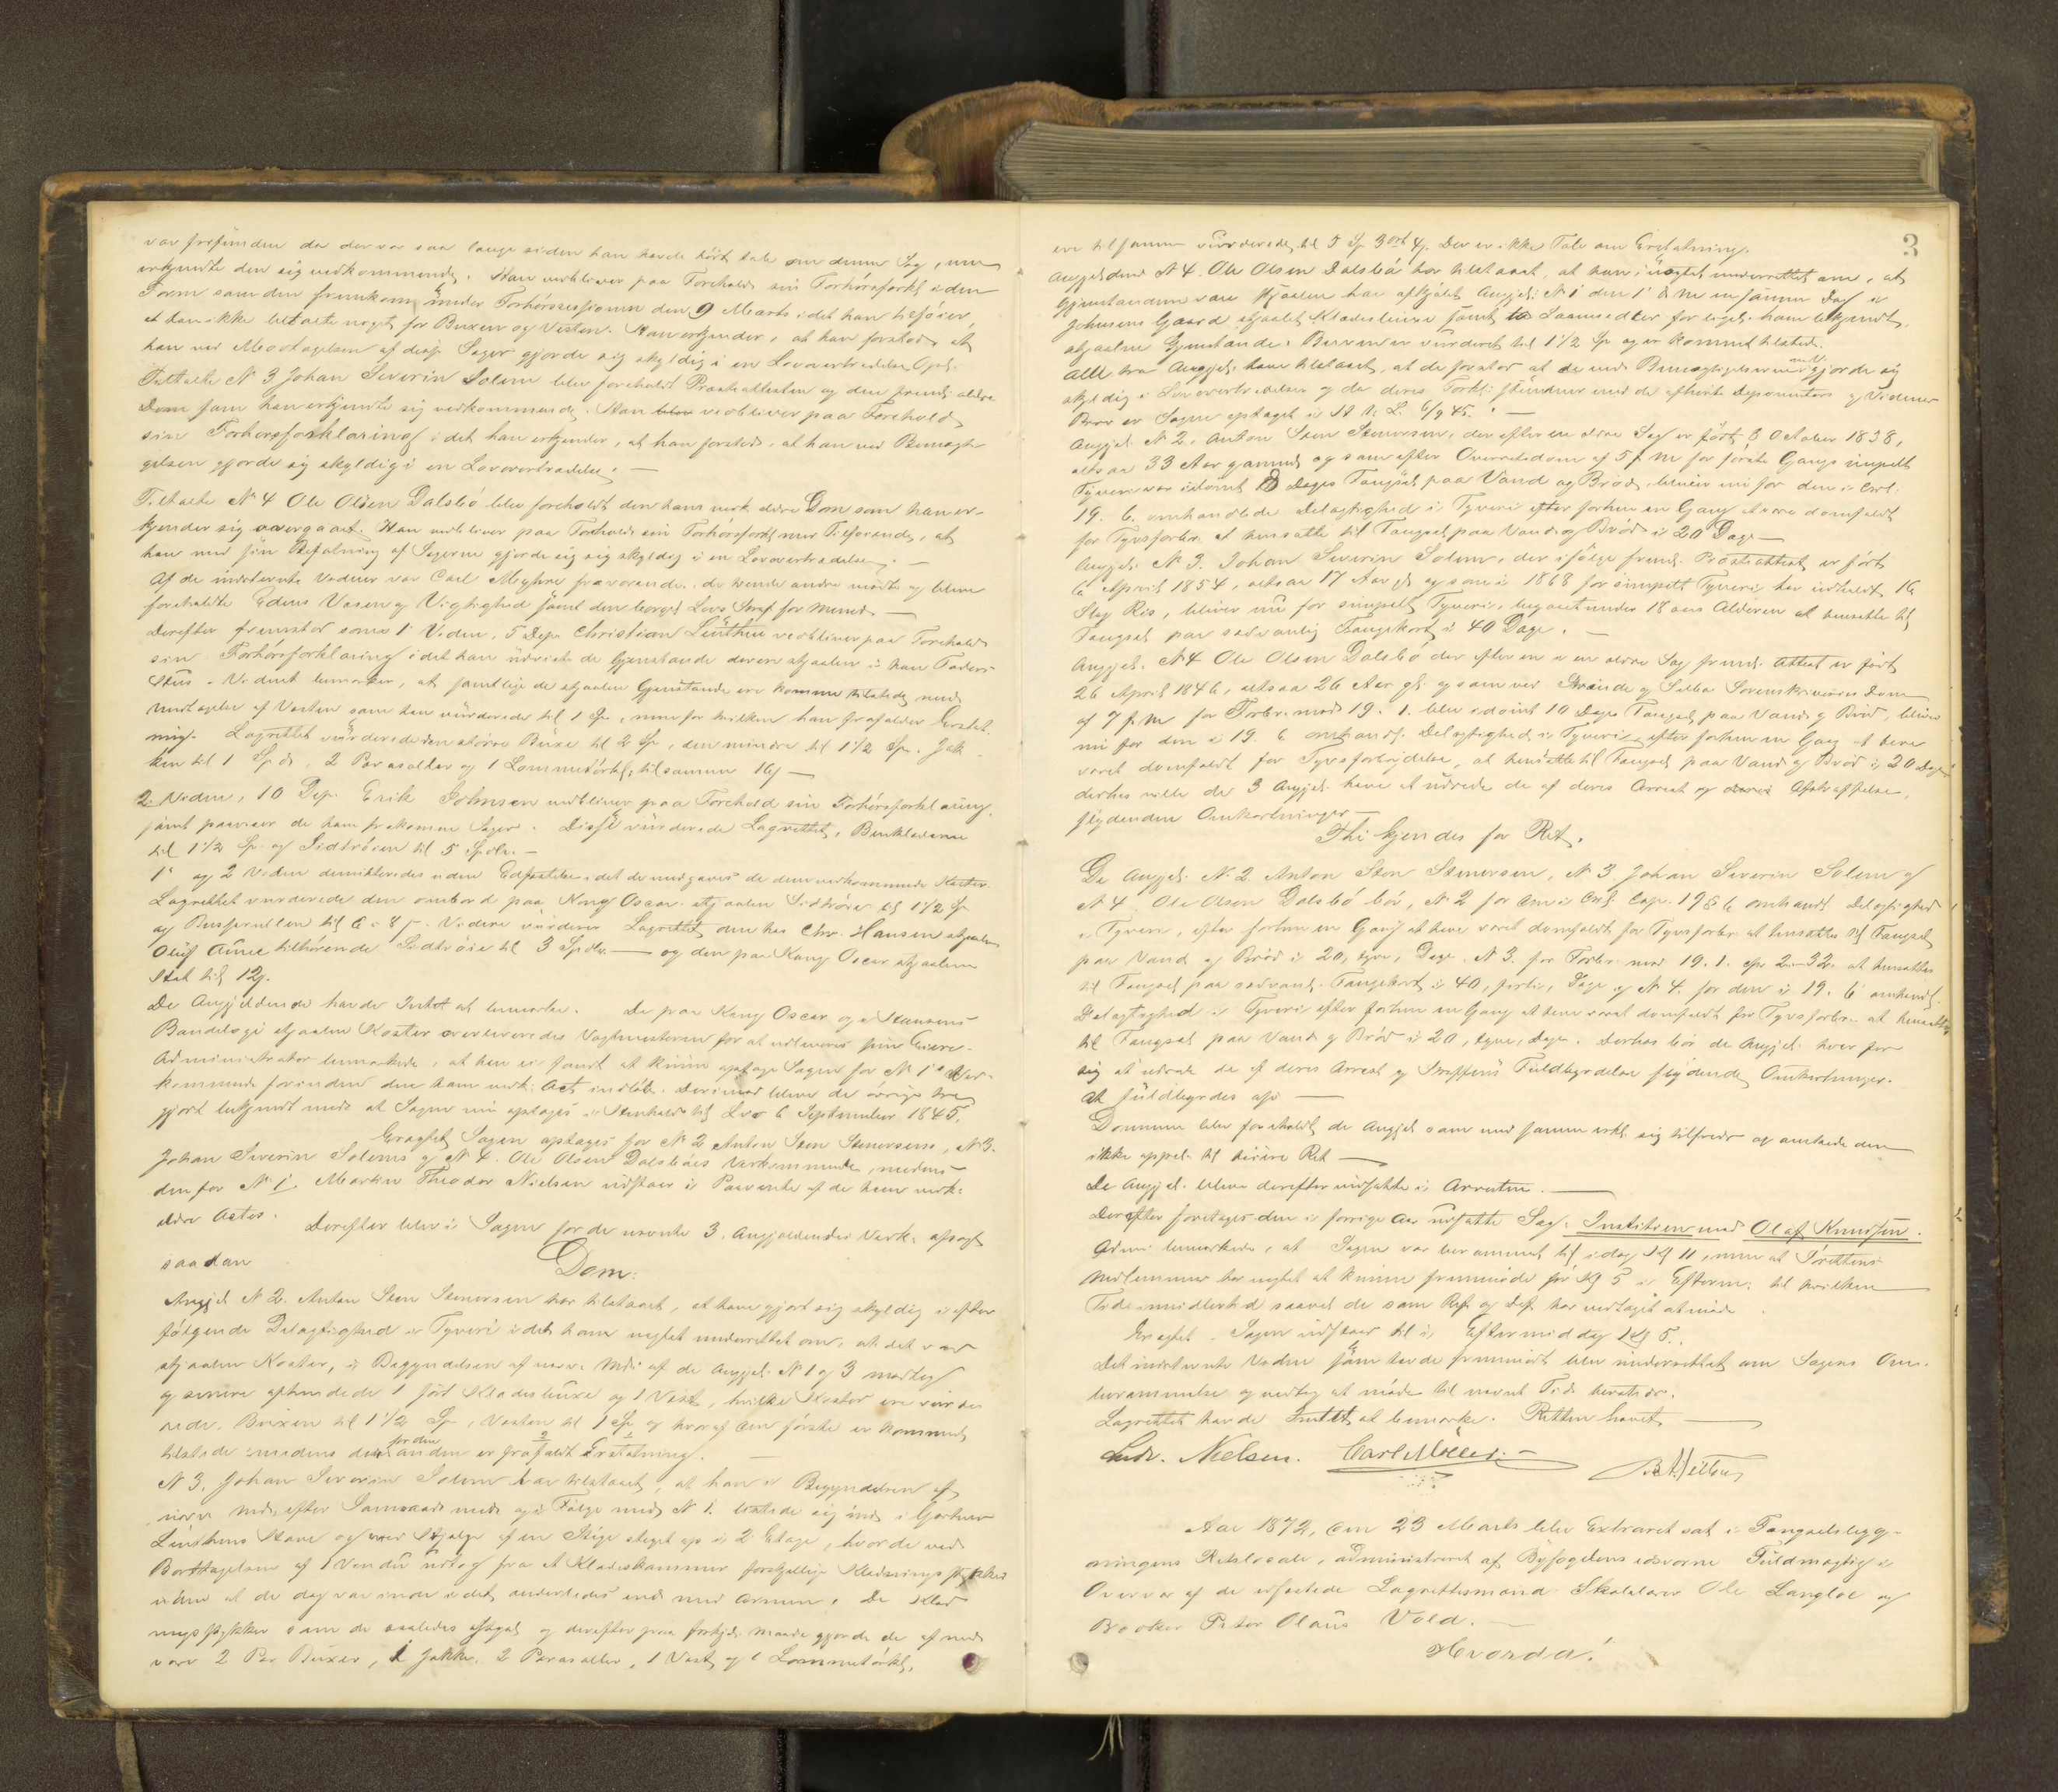 var da der var saa længe siden han havde hørt tale om denne Sag, men
erkjendte den sig vedkommende. Han vedbliver paa Forehold sin Forhørsforkl. i den
Form som den fremkom under Forhørssessionen den 9 Marts idet han tilføier,
at han ikke betalte noget for Buxen og Vesten. Han erkjender, at han forstod, at
han ved Modtagelsen af disse Sager gjorde sig skyldig i en Lovovertrædelse.
Tiltalte N 3 Johan Severin Solem blev foreholdt Præsteattesten og den ældre
Dom som han erkjendte sig vedkommende. Han blev vedbliver paa Forehold
sin Forhørsforklaring idet han erkjender, at han forstod, at han ved Bemægti-
gelsen gjorde sig skyldig i en Lovovertrædelse. —
Tiltalte N 4 Ole Olsen Dalsbø blev foreholdt den ham vedk. ældre Dom som han er-
kjender sig overgaaet. Han vedbliver paa Forhold sin Forhørsforkl. med Tilføiende, at
han ved sin Befatning af Sagerne gjorde sig skyldig i en Lovovertrædelse. —
Af de indstevnte Vidner var Carl Meyhre fraværende. De andre mødte og bleve
foreholdte Edens Væsen og Vigtighed samt den borgl. Lovs Straf for Mened —
Derefter fremstod som 1 Vidne, 5 Dep. Christian Linthue vedbliver paa Forehold
sin Forhørsforklaring idet han de Gjenstande der ere stjaalne i han Faders
Hus. Vidnet bemærker, at samtlige de stjaalne Gjenstande ere komne tilstede med
Undtagelse af Vesten som han vurderede til 1 Sp, men for hvilken han frafalder Erstat-
ning. Lagrettet vurderede den større Buxe til 2 Sp, den mindre til 1 1/2 Sp. Jak
ken til 1 Sp, 2 Parasoller og 1 Lommetørkl. tilsammen
2. Vidne, 10 Dep. Erik Johnsen vedbliver paa Forehold sin Forhørsforklaring
samt paaviser de ham frakomne Sager. Disse vurderede Lagrettet, Benklæderne
til 1 1/2 Sp og Sidtrøien til 5 Spdlr. —
1 og 2 Vidne dimitteredes uden idet de medgaves de dem vedkommende Koster.
Lagrettet vurderede den ombord paa Kong Oscar stjaalne Sidtrøie til 1 1/2 Sp
og til Videre vurderes Lagrettet den hos Chr. Hansen stjaalne
Oluf Aune tilhørende Sidtrøie til 3 Spdlr. — og den paa Kong Oscar stjaalne
Hat til
De Angjeldende havde Intet at bemærke. De paa Kong Oscar og i Hansens
stjaalne Koster overleveredes Vagtmesteren for at udleveres sine Eiere.
Administrator bemærkede, at han ei fandt at kunne optage Sagen for N 1 Ved-
kommende forinden den ham vedk. Act indløb. Derimod bleve de øvrige tre
gjort bekjendt med at Sagen nu optages i Henhold til Lov 6 September 1845.
Eragtet Sagen optages for N 2 Anton Sten Stenersens, N 3.
Johan Severin Solems og N 4. Ole Olsen Dalsbøes Vedkommende, medens
den for N 1. Martin Theodor Nielsen udstaar i Paavente af de ham vedk.
ældre Acter. Derefter blev i Sagen for de nævnte 3. Angjeldendes Vedk. afsagt
saadan Dom:
Angjel N 2. Anton Sten Stenersen har tilstaaet, at have gjort sig skyldig i efter
følgende Delagtighed i Tyveri idet han nøgtet underrettet om, at det var
stjaalne Koster, i Begyndelsen af nærv. Md. af de Angjel. N 1 og 3 modtog
og senere afhændede 1 sort Klædesbuxe og 1 Vest, hvilke Koster ere vurde
rede, Buxen til 1 1/2 Sp, Vesten til 1 Sp og hvoraf den første er kommet
tilstede medens der for den anden er frafaldt Erstatning. —
N 3. Johan Severin Solem har tilstaaet, at han i Begyndelsen af
nærv. Md. efter Samraad med og i Følge med N 1. listede sig ind i Gartner
Linthues Have og ved Hjælp af en Stige steget op i 2 Etage, hvor de ved
Borttagelsen af 1 Vindu udtog fra et Klædeskammer forskjellige Klædningsstykker
uden at de dog var inde i det anderledes end med Armene. De Klæd
ningsstykker som de saaledes og derefter paa forskjel. Maade gjorde de af med
vare 2 Par Buxer, 1 Jakke, 2 Parasoller, 1 Vest og 1 Lommetørkl.
3
ere tilsammen vurderede til 5 Sp 3 ort 4. Der er ikke Tale om Erstatning.
Angjeldend N 4. Ole Olsen Dalsbø har tilstaaet, at han, underrettet om, at
Gjenstandene vare stjaalne har afkjøbt Angjel. N 1 den i
Johnsens Gaard stjaalet Klædesbuxe samt to Laanesedler for ham bekjendt
stjaalne Gjenstande. Buxen er vurderet til 1 1/2 Sp og er kommet tilstede.
Alle tre Angjel. have tilstaaet, at de forstod at de ved Bemægtigelsen gjorde sig
skyldig i Lovovertrædelser og da deres Forkl. stemmer med de afhørte Deponenters og Vidners
Prov er Sagen optaget i L. 6/9 45. —
Angjel. N 2. Anton Sten Stenersen, der efter en ældre Sag er født 8 October 1838,
altsaa 33 Aar gammel og som efter Overretsdom af 5 f. M for første Gangs simpelt
Tyveri var idømt 18 Dages Fængsel paa Vand og Brød, bliver nu for den i Crl.
19. 6. omhandlede Delagtighed i Tyveri efter forhen en Gang at være domfældt
for Tyvsforbr. at hensætte til Fængsel paa Vand og Brød i 20 Dage —
Angjel. N 3. Johan Severin Solem, der ifølge freml. Præsteattest er født
6 April 1854, altsaa 17 Aar gl. og som i 1868 for simpelt Tyveri har udholdt 16
Slag Ris, bliver nu for simpelt Tyveri, begaaet under 18 Aars Alderen at hensætte til
Fængsel paa sædvanlig Fangekost i 40 Dage. —
Angjel. N 4 Ole Olsen Dalsbø der efter en i en ældre Sag freml. Attest er født
26 April 1846, altsaa 26 Aar gl. og som ved Strinde og Selbo Sorenskriveries Dom
af 7 f. M for Forbr. mod 19. 1. blev idømt 10 Dages Fængsel paa Vand og Brød, bliver
nu for den i 19. 6 omhandl. Delagtighed i Tyveri efter forhen en Gang at have
været domfældt for Tyvsforbrydelse, at hensætte til Fængsel paa Vand og Brød i 20 Dage
derhos ville de 3 Angjel. have at udrede de af deres Arrest og deres Afstraffelse
flydende Omkostninger —
Thi kjendes for Ret.
De Angjel. N. 2. Anton Sten Stenersen, N 3. Johan Severin Solem og
N 4. Ole Olsen Dalsbø bør, N 2 for den i Crl. Cap. 19 § 6 omhandl. Delagtighed
i Tyveri, efter forhen en Gang at have været domfældt for Tyvsforbr. at hensættes til Fængsel
paa Vand og Brød i 20, tyve, Dage. N 3. for Forbr. mod 19. 1. cfr 2-32. at hensættes
til Fængsel paa sædvanl. Fangekost i 40, førti, Dage og N 4. for den i 19. 6 omhandl.
Delagtighed i Tyveri efter forhen en Gang at have været domfældt for Tyvsforbr. at hensættes
til Fængsel paa Vand og Brød i 20, tyve, Dage. Derhos bør de Angjel. hver for
sig at udrede de af deres Arrest og Straffens Fuldbyrdelse flydende Omkostninger.
At fuldbyrdes —
Dommen blev foreholdt de Angjel. som med samme erkl. sig tilfreds og ønskede den
ikke appel. til høiere Ret —
De Angjel. bleve derefter indsatte i Arresten. —
Derefter foretages den i forrige Aar udsatte Sag: Justitien mod Olaf Knudsen.
Adm. bemærkede, at Sagen var berammet til idag Kl 11, men at Rettens
Medlemmer har nøgtet at kunne fremmøde før Kl 5 i Efterm. til hvilken
Tid imidlertid saavel de som Ref. og Def. har vedtaget at møde
Eragtet. Sagen udstaar til i Eftermiddag Kl 5.
Det indstevnte Vidne som havde fremmødt blev underrettet om Sagens Om-
berammelse og vedtog at møde til nævnt Tid herstedes.
Lagrettet havde Intet at bemærke. Retten hævet —
Ludv. Nielsen. Carl Møller. —
Aar 1872, den 23 Marts blev Extraret sat i Fængselsbyg-
ningens Retslocale, administreret af Byfogdens edsvorne Fuldmægtig i
Overvær af de edfæstede Lagrettesmænd Skolelærer Ole Langlo og
Bødker Peter Olaus Vold. —
Hvorda!